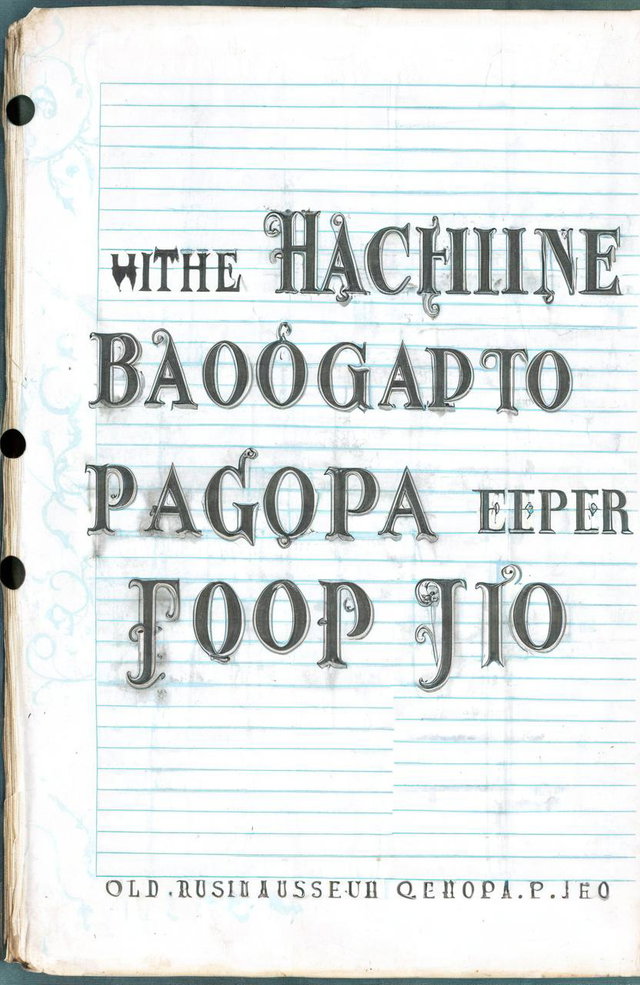 WITHE HACHIINE
BAOOGAPTO
PAGOPA EEPER
FOOP JIO
OLD.RUSINAUSSEUH QEHOPA.P.JHO